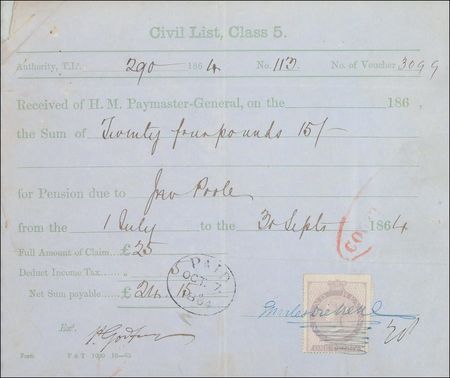 Civil List, Class 5.
Authority, T.L. 290 1864 No. 113 No. of Voucher 3099
Received of H. M. Paymaster-General, on the 186 ,
the Sum of Twenty four pounds 15/-
for Pension due to Jno Poole
from the 1 July to the 30 Septr 1864
Full Amount of Claim £ 25
Deduct Income Tax
Net Sum payable £ 24 15
PAID
OCT. 7
1864
Exd.